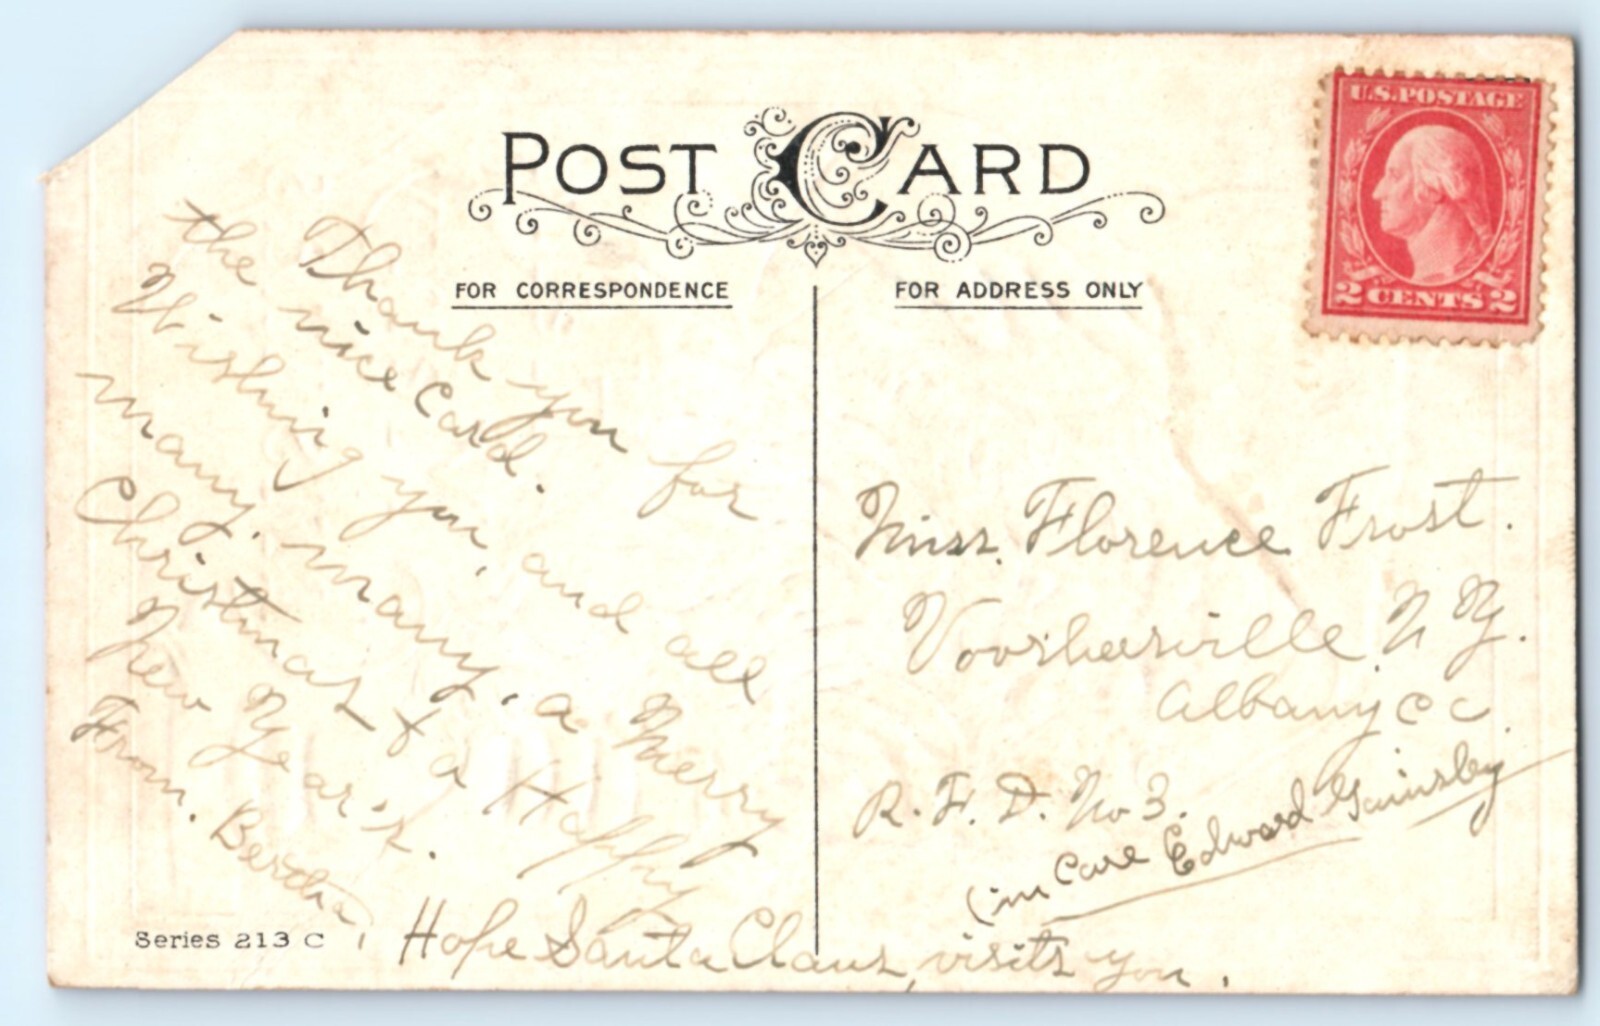 POST CARD
FOR CORRESPONDENCE
FOR ADDRESS ONLY
U.S. POSTAGE
2 CENTS 2
Thank you for
the nice card.
Wishing you, and all
many, many, a Merry
Christmas & a Happy
New Year's.
From. Bertha,
Hope Santa Claus, visits you.
Miss. Florence Frost.
Voorheesville, N. Y.
Albany Co
R. F. D. No 3.
(in care Edward
Series 213 C